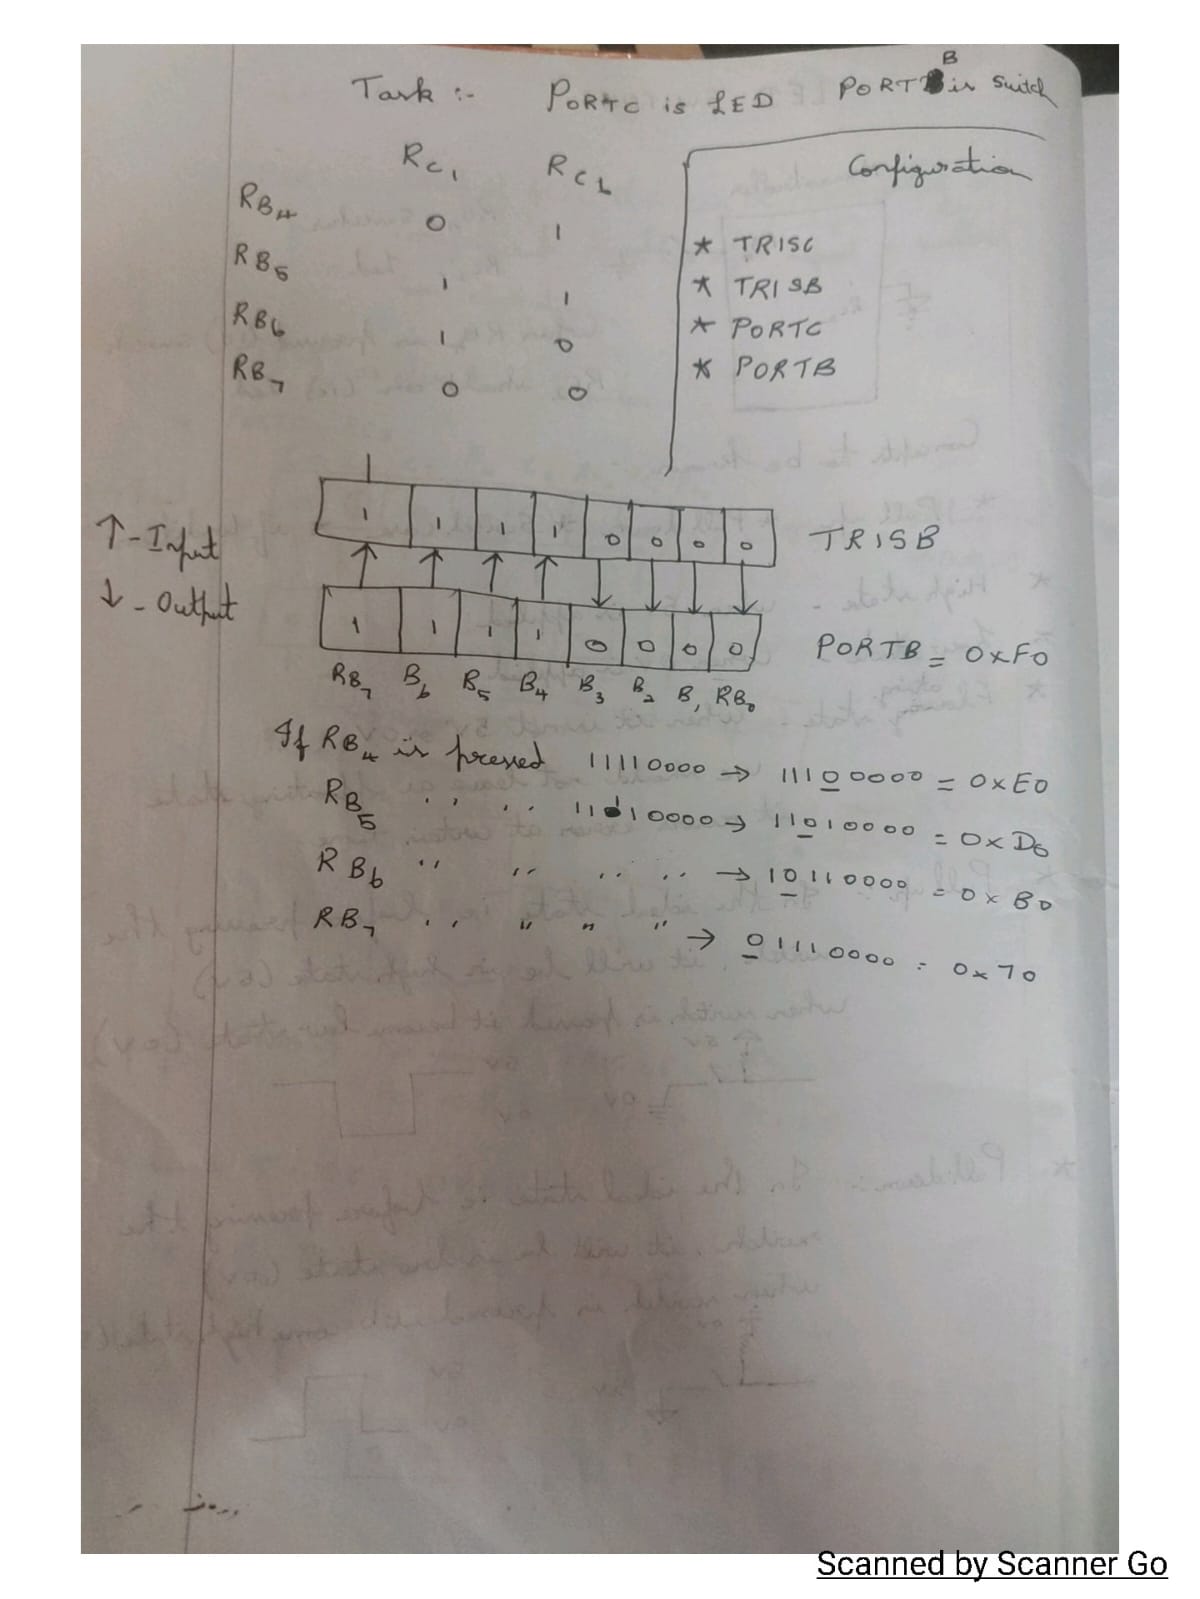 Task :- PORTC is LED PORTB is switch
B
RC1 RC6
RB4 0 1
RB5 1 1
RB6 1 0
RB7 0 0
Configuration
* TRISC
* TRISB
* PORTC
* PORTB
↑ - Input
↓ - Output
1 1 1 1 0 0 0 0 TRISB
1 1 1 1 0 0 0 0 PORTB = 0xF0
RB7 B6 B5 B4 B3 B2 B1 RB0
If RB4 is pressed 11110000 → 11100000 = 0xE0
RB5 " " 11110000 → 11010000 = 0xD0
RB6 " " " " → 10110000 = 0xB0
RB7 " " " " → 01110000 = 0x70
Scanned by Scanner Go